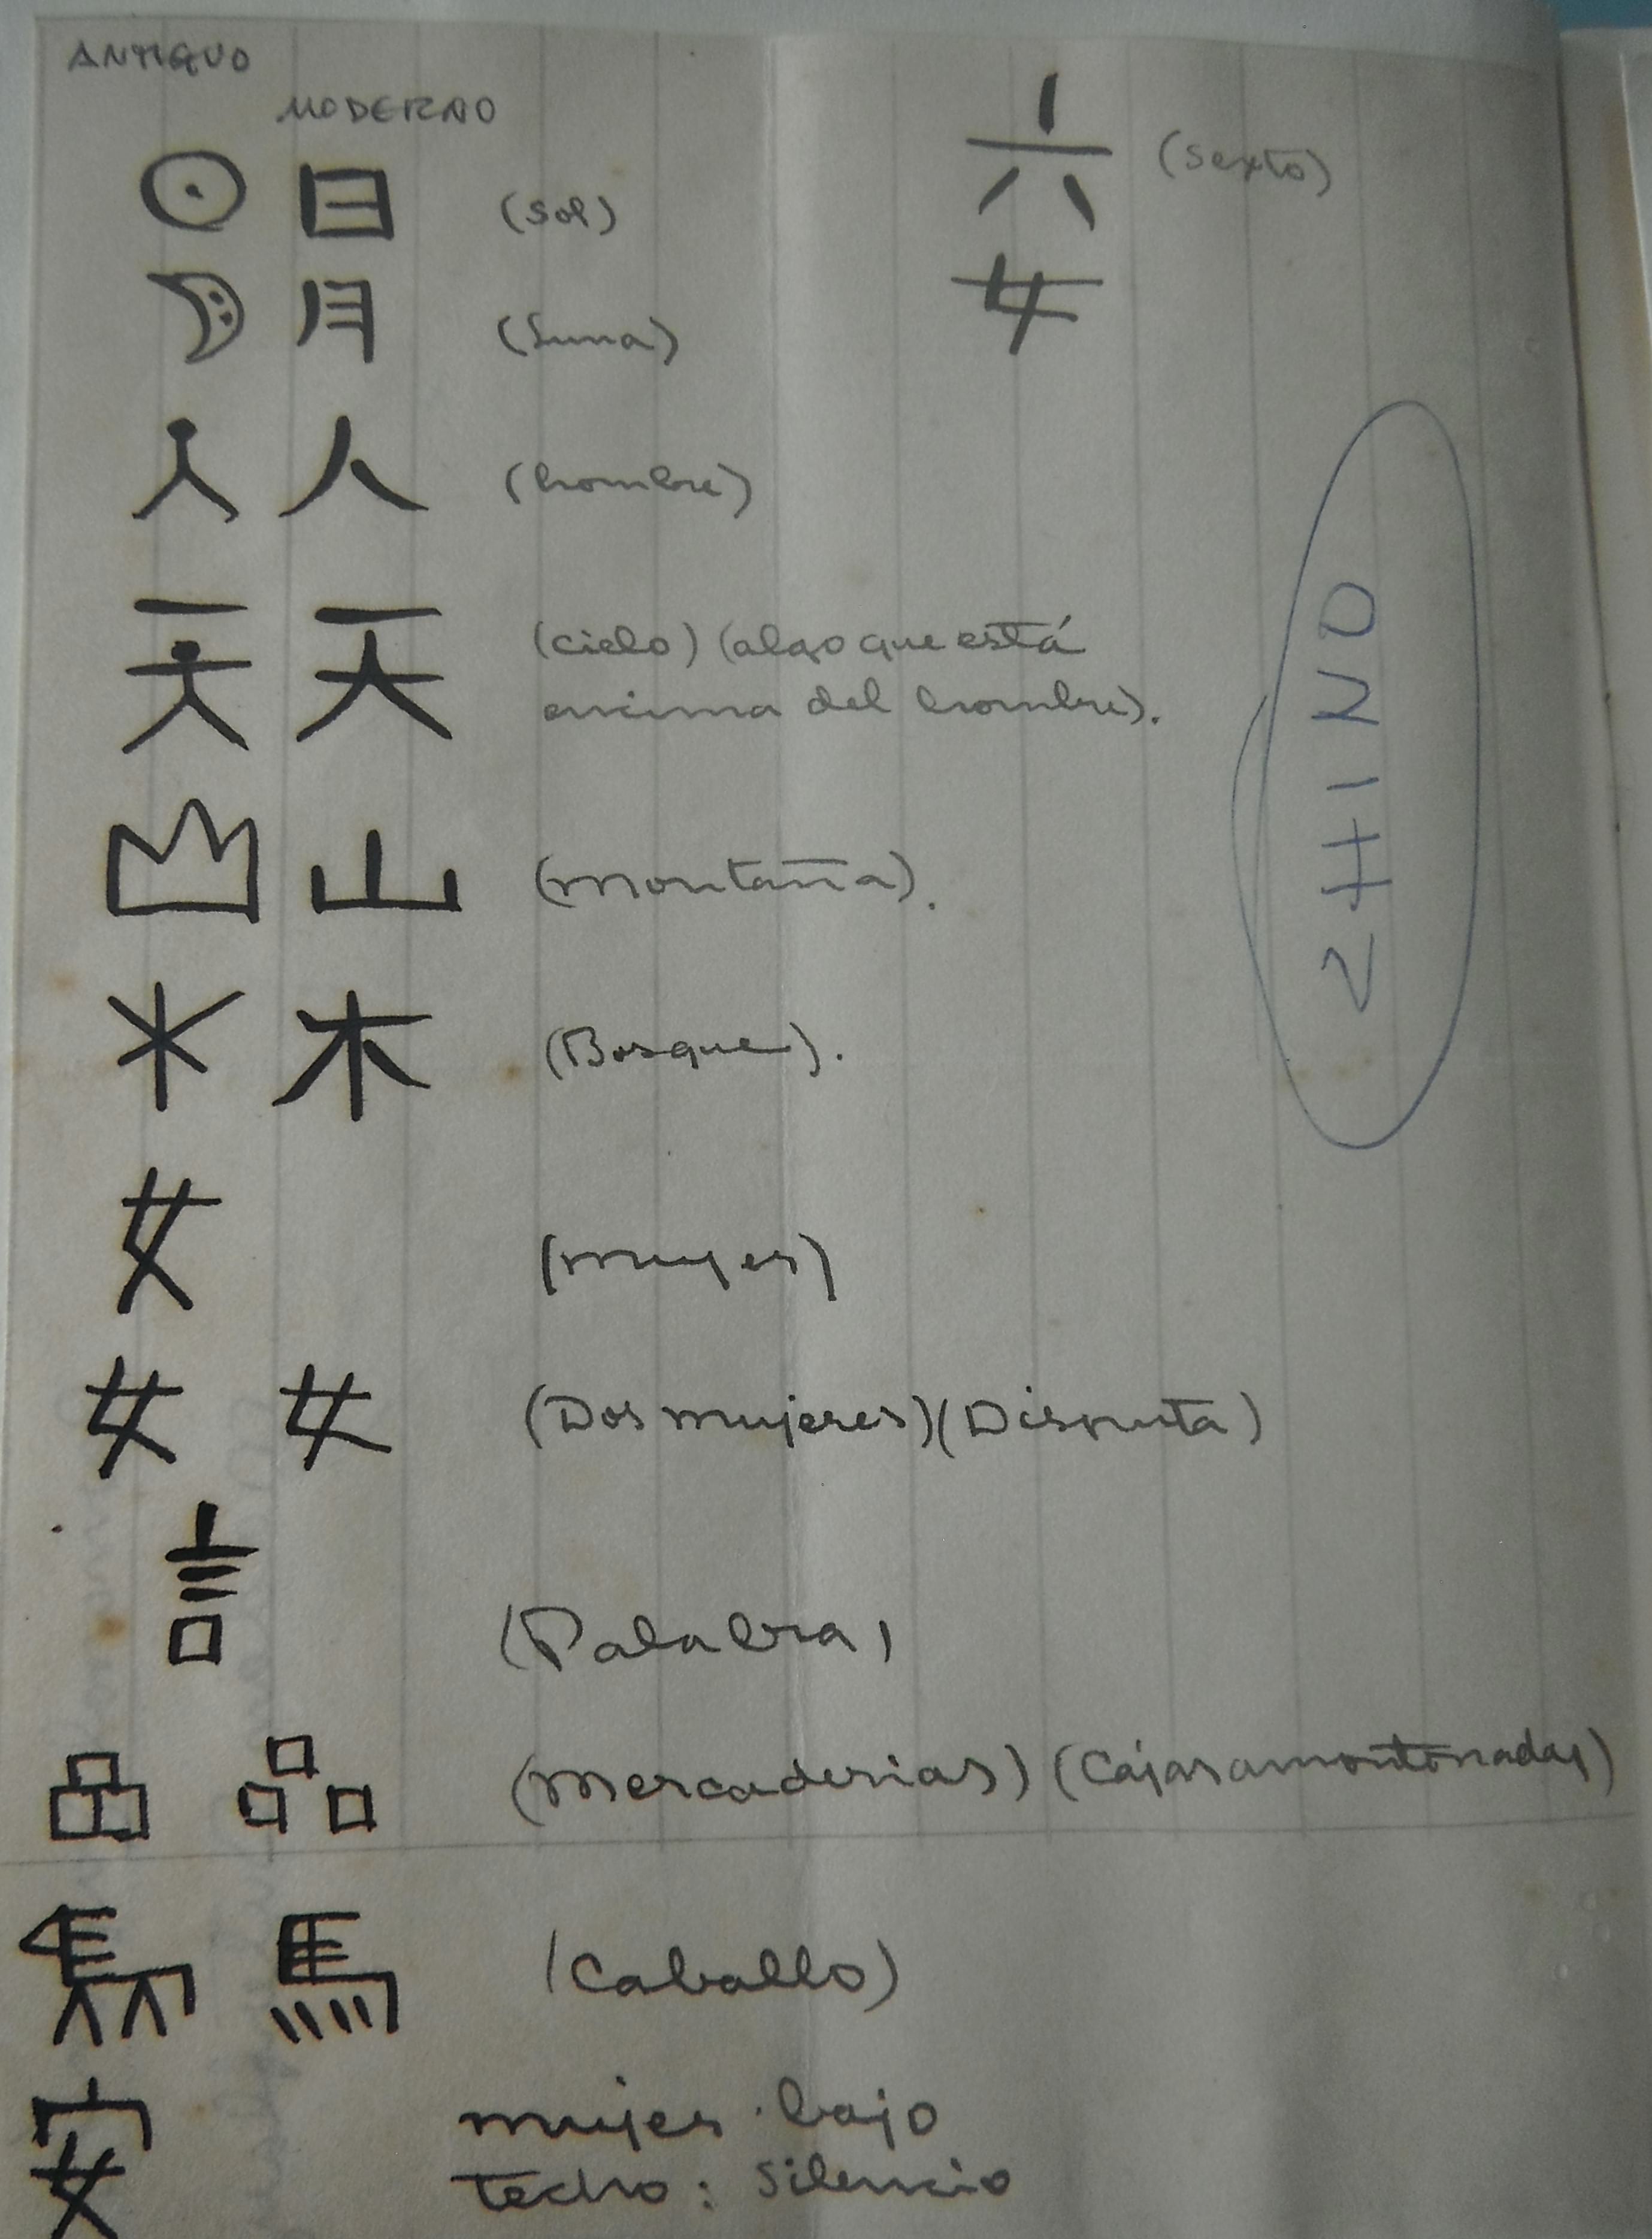 ANTIGUO
MODERNO
日 (sol)
月 (Luna)
人 (hombre)
天 (cielo) (algo que está
encima del hombre).
山 (montaña).
木 (Bosque).
女 (mujer)
女 女 (Dos mujeres) (Disputa)
言 (Palabra)
品 (mercaderias) (Cajas amontonadas)
馬 (Caballo)
安 mujer bajo
techo: Silencio
六 (sexto)
女
CHINO